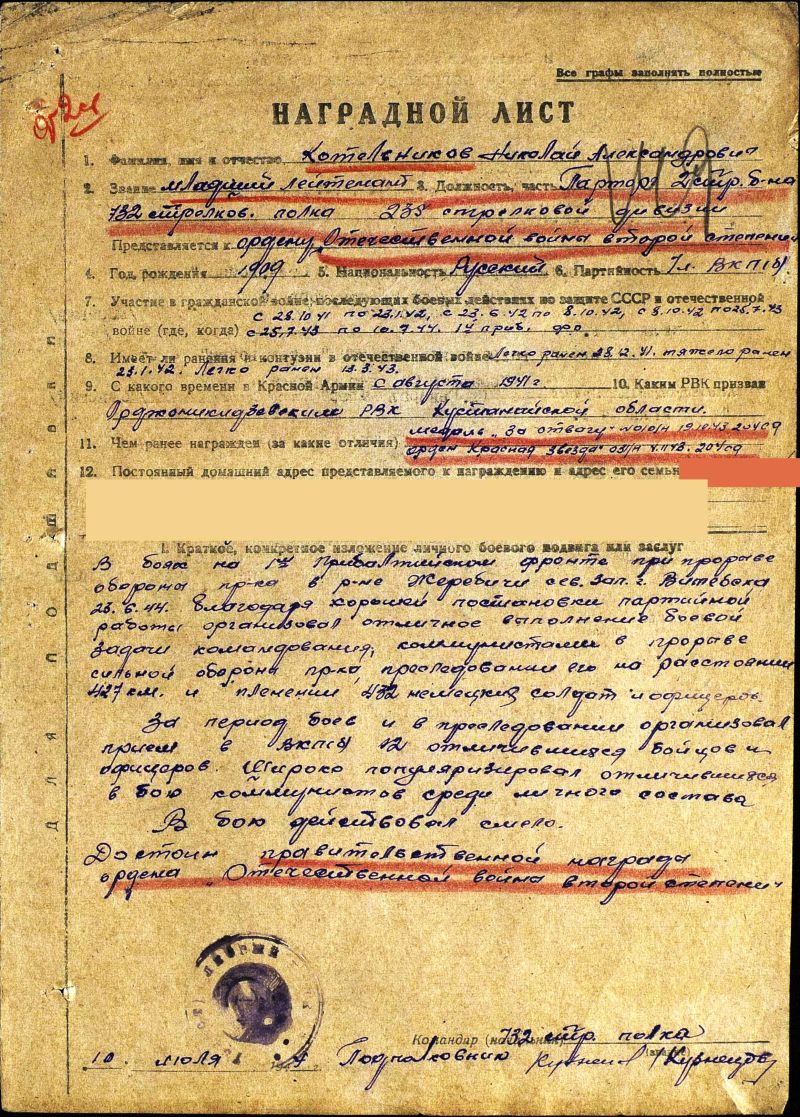 Все графы заполнять полностью
НАГРАДНОЙ ЛИСТ
1. Фамилия, имя и отчество Котельников Николай Александрович
2. Звание младший лейтенант 3. Должность, часть Парторг 2 стр. б-на
732 стрелков. полка 235 стрелковой дивизии
Представляется к ордену Отечественной войны второй степени
4. Год рождения 1909 5. Национальность Русский 6. Партийность Чл. ВКП(б)
7. Участие в гражданской войне, последующих боевых действиях по защите СССР и отечественной
с 28.10.41 по 23.1.42, с 23.6.42 по 8.10.42, с 8.10.42 по 25.7.43
войне (где, когда) с 25.7.43 по 10.7.44. 1й приб. фр.
8. Имеет ли ранения и контузии в отечественной войне Легко ранен 28.12.41. тяжело ранен
23.1.42. Легко ранен 13.3.43.
9. С какого времени в Красной Армии с августа 1941 г. 10. Каким РВК призван
Орджоникидзевским РВК Кустанайской области.
медаль „За отвагу" 19.10.43 204 сд
11. Чем ранее награжден (за какие отличия) орден Красная звезда 204 сд
12. Постоянный домашний адрес представляемого к награждению и адрес его семьи
I. Краткое, конкретное изложение личного боевого подвига или заслуг
В боях на 1м Прибалтийском фронте при прорыве
обороны пр-ка в р-не Жеребичи сев. зап. г. Витебска
23.6.44. благодаря хорошей постановки партийной
работы организовал отличное выполнение боевой
задачи командования, коммунистами в прорыве
сильной обороны пр-ка, преследовании его на расстоянии
427 км. и пленении 432 немецких солдат и офицеров.
За период боев и в преследовании организовал
прием в ВКП(б) 12 отличившихся бойцов и
офицеров. Широко популяризировал отличившихся
в бою коммунистов среди личного состава
В бою действовал смело.
Достоин правительственной награды
ордена „Отечественной войны второй степени"
ДЛЯ ПОДШИВКИ
Командир (начальник) 732 стр. полка
10 июля Подполковник Кузнецов